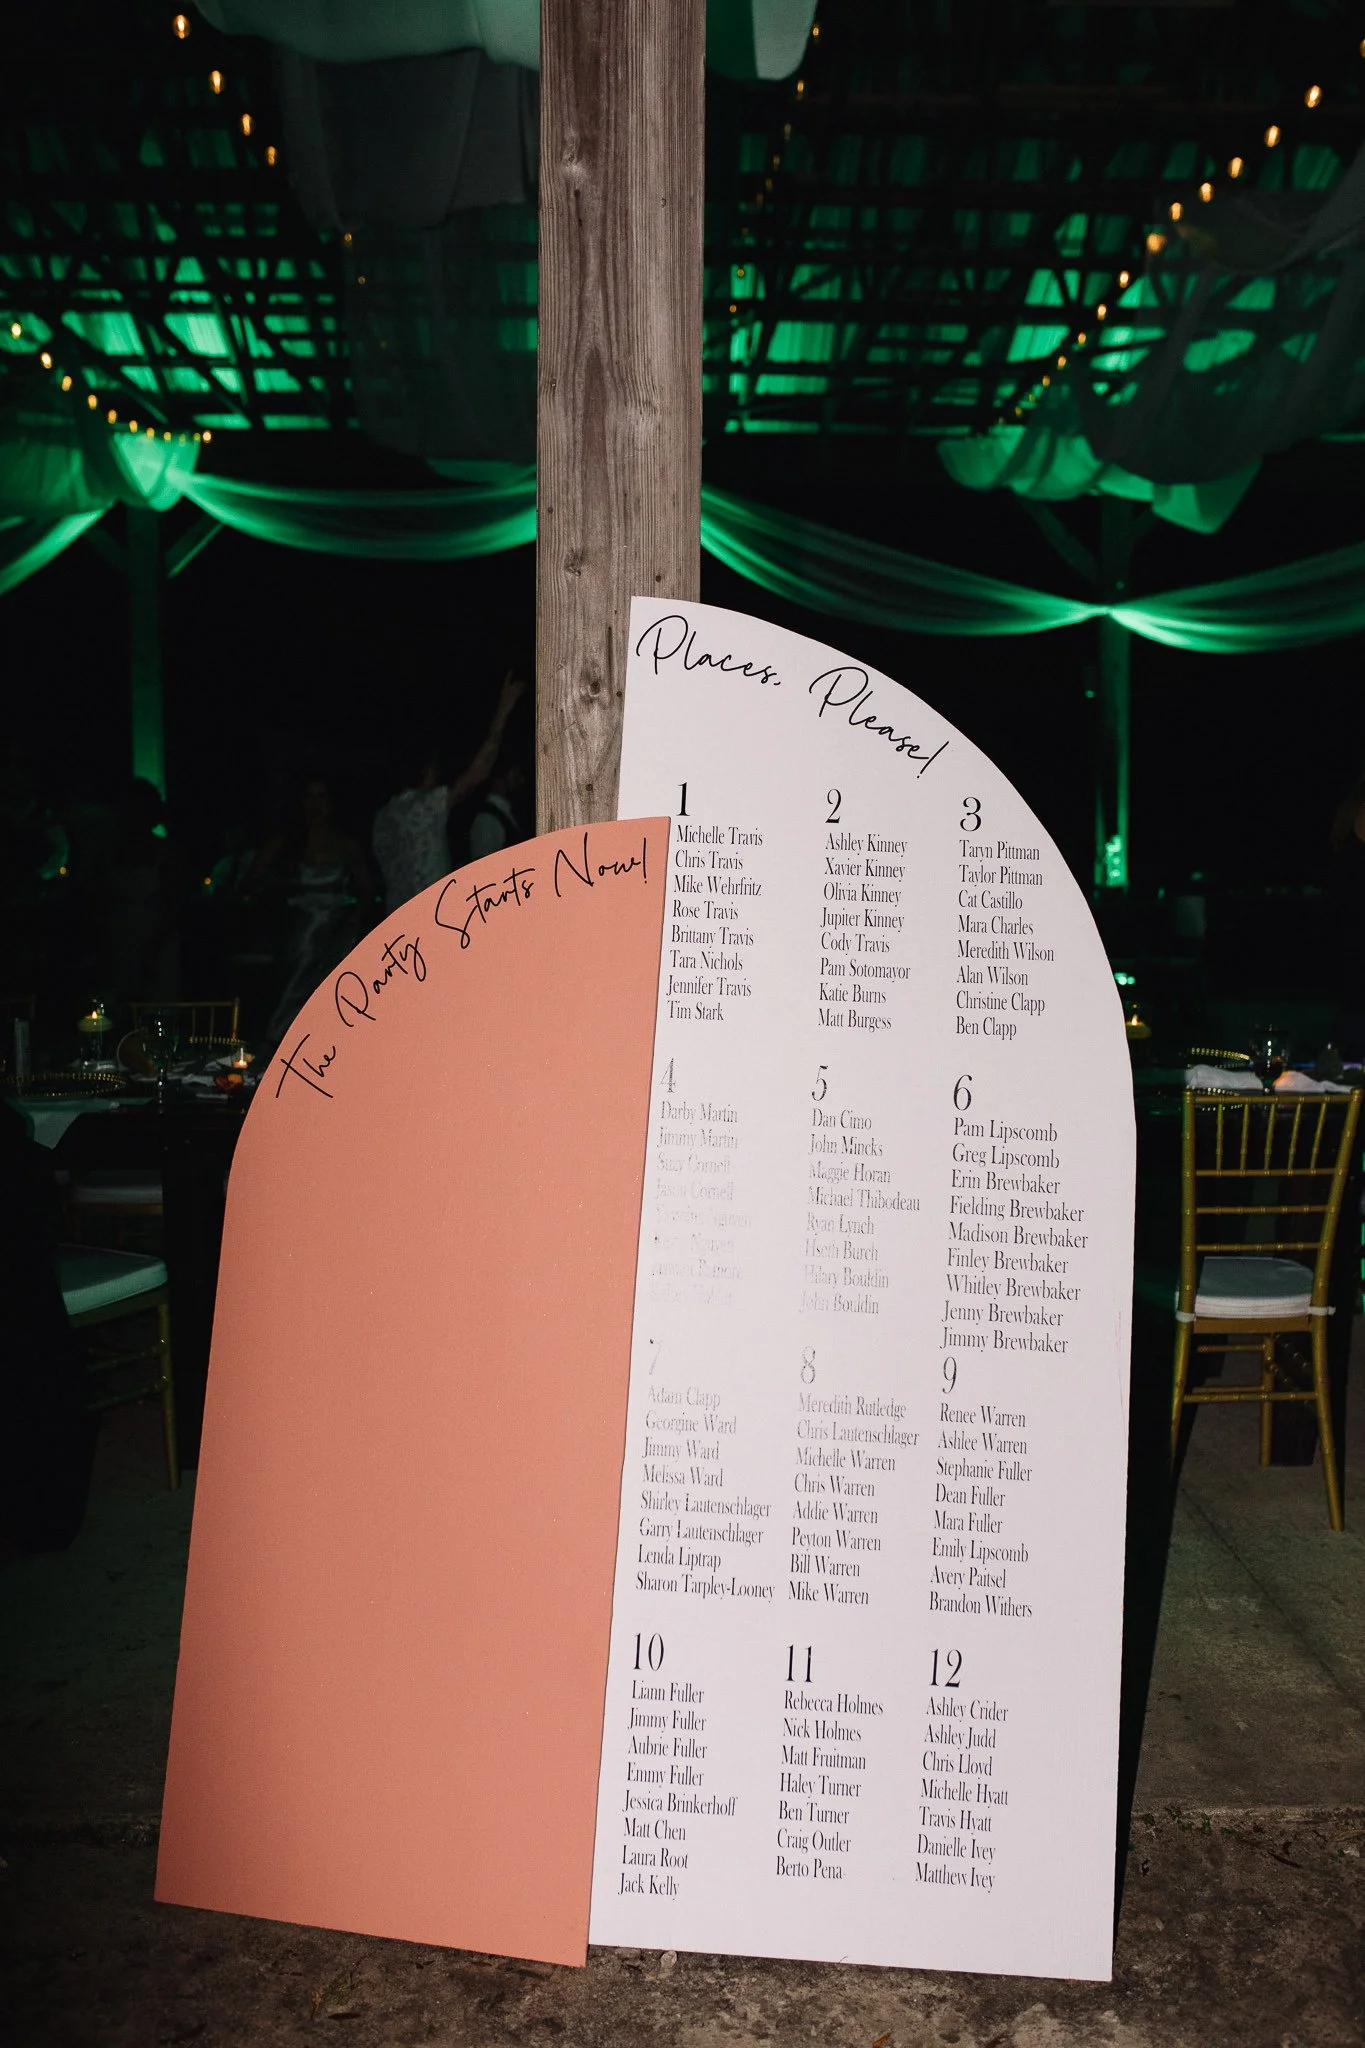 Places, Please!
The Party Starts Now!
1
Michelle Travis
Chris Travis
Mike Wehrfritz
Rose Travis
Brittany Travis
Tara Nichols
Jennifer Travis
Tim Stark
2
Ashley Kinney
Xavier Kinney
Olivia Kinney
Jupiter Kinney
Cody Travis
Pam Sotomayor
Katie Burns
Matt Burgess
3
Taryn Pittman
Taylor Pittman
Cat Castillo
Mara Charles
Meredith Wilson
Alan Wilson
Christine Clapp
Ben Clapp
4
Darby Martin
Jimmy Martin
Suzy Cornell
Jason Cornell
Nguyen
Nguyen
5
Dan Cimo
John Mincks
Maggie Horan
Michael Thibodeau
Ryan Lynch
Burch
Hilary Bouldin
John Bouldin
6
Pam Lipscomb
Greg Lipscomb
Erin Brewbaker
Fielding Brewbaker
Madison Brewbaker
Finley Brewbaker
Whitley Brewbaker
Jenny Brewbaker
Jimmy Brewbaker
7
Adam Clapp
Georgine Ward
Jimmy Ward
Melissa Ward
Shirley Lautenschlager
Garry Lautenschlager
Lenda Liptrap
Sharon Tarpley-Looney
8
Meredith Rutledge
Chris Lautenschlager
Michelle Warren
Chris Warren
Addie Warren
Peyton Warren
Bill Warren
Mike Warren
9
Renee Warren
Ashlee Warren
Stephanie Fuller
Dean Fuller
Mara Fuller
Emily Lipscomb
Avery Paitsel
Brandon Withers
10
Liann Fuller
Jimmy Fuller
Aubrie Fuller
Emmy Fuller
Jessica Brinkerhoff
Matt Chen
Laura Root
Jack Kelly
11
Rebecca Holmes
Nick Holmes
Matt Fruitman
Haley Turner
Ben Turner
Craig Outler
Berto Pena
12
Ashley Crider
Ashley Judd
Chris Lloyd
Michelle Hyatt
Travis Hyatt
Danielle Ivey
Matthew Ivey